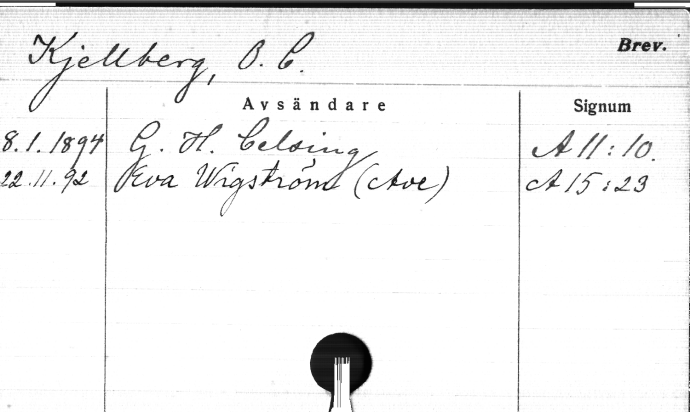 Kjellberg, O. C.
Brev.
Avsändare
Signum
8.1.1894 G. H. Celsing A 11:10.
22.11.92 Eva Wigström (Ave) A 15:23